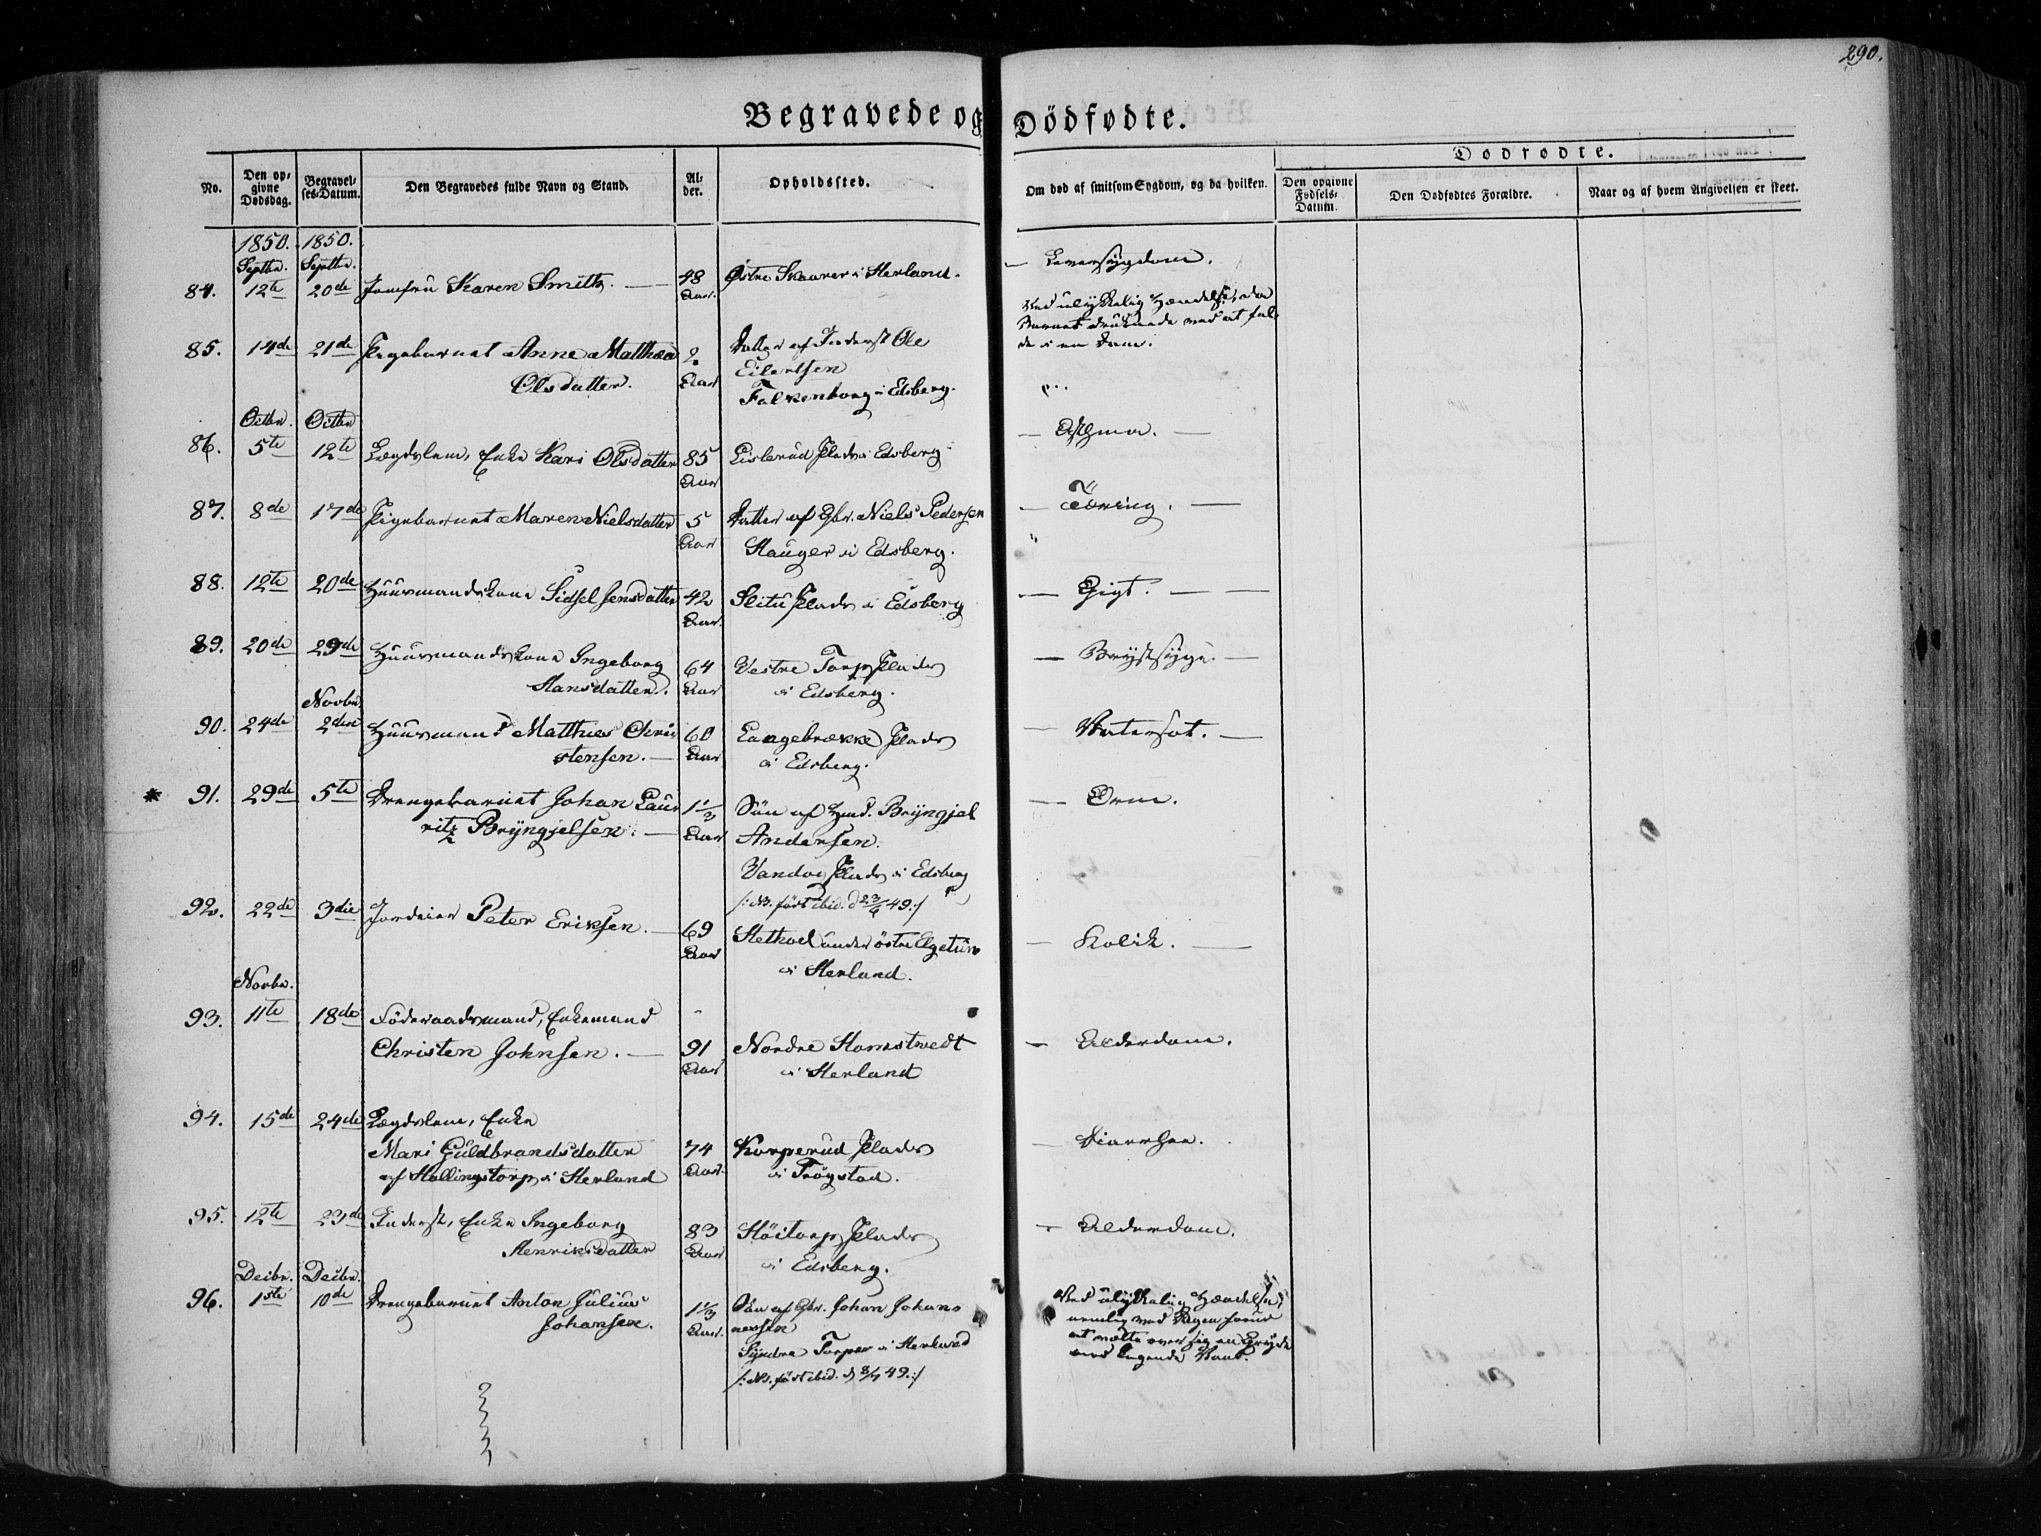 290.
Begravede og Dödfødte.
No.
Den op-
givne
Dødsdag.
Begravel-
ses-Datum.
Den Begravedes fulde Navn og Stand.
Al-
der.
Opholdssted.
Om død af smitsom Sygdom, og da hvilken.
Dødfødte.
Den opgivne
Fødsels-
Datum.
Den Dødfødtes Forældre.
Naar og af hvem Angivelsen er skeet.
1850. 1850.
Septbr. Septbr.
84. 12te 20de Jomfru Karen Smith. 48 Aar. Østre Skaarer i Herland. Leversygdom.
85. 14de 21de Pigebarnet Anne Mathea
Olsdatter. 2 Aar
Datter af Inderst Ole
Eilertsen
Falkenborg i Edsberg.
Ved ulykkelig Hændelse, da
Barnet druknede ved at fal-
de i en Dam.
Octbr. Octbr
86. 5te 12te Lægdslem, Enke Kari Olsdatter 85 Aar Lislerud Plads i Edsberg Asthma.
87. 8de 17de Pigebarnet Maren Nielsdatter 5 Aar Datter af Gbr. Niels Pedersen
Hauger i Edsberg.
Tæring.
88. 12te 20de Huusmandskone Sidsel Jensdatter 42 Aar. Slitu Plads i Edsberg Gigt.
89. 20de 29de Huusmandskone Ingeborg
Hansdatter. 64 Aar Vestre Torp Plads
i Edsberg. Brystsyge.
Novbr.
90. 24de 2den Huusmand Matthies Chri-
stensen. 60 Aar Langebrække Plads
i Edsberg. Vatersot.
91. 29de 5te Drengebarnet Johan Lau-
ritz Bryngjelsen. 1 1/3 Aar Søn af Hmd. Bryngjel
Andersen.
Plads i Edsberg
/: NB. født ibid. d 23/6 49 :/
Orm.
92. 22de 3die Jordeier Peter Eriksen. 69 Aar under østre
i Herland. Kolik.
Novbr.
93. 11te 18de Föderaadsmand, Enkemand
Christen Johnsen. 91 Aar Nordre Homstvedt
i Herland Alderdom.
94. 15de 24de Lægdslem, Enke
Mari Guldbrandsdatter
af Hallingstorp i Herland 74 Aar. Korperud Plads
i Trögstad. Diarrhee.
95. 12te 23de Inderst, Enke Ingeborg
Henriksdatter 83 Aar Höitorp Plads
i Edsberg. Alderdom.
Decbr. Decbr.
96. 1ste 10de Drengebarnet Anton Julius
Johansen. 1 1/3 Aar. Søn af Gbr. Johan Johan-
nessen
Syndre Torper i Herland
/: NB. født ibid. d 8/7 49 :/
Ved ulykkelig Hændelse,
nemlig ved
at vælte over sig en Gryde
med kogende Vand.